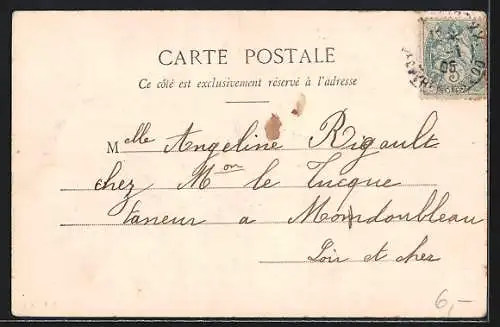 CARTE POSTALE
Ce côté est exclusivement réservé à l'adresse
Melle Angeline Rigault
chez Mon le Tucque
taneur a Mondoubleau
Loir et cher
05
6,-